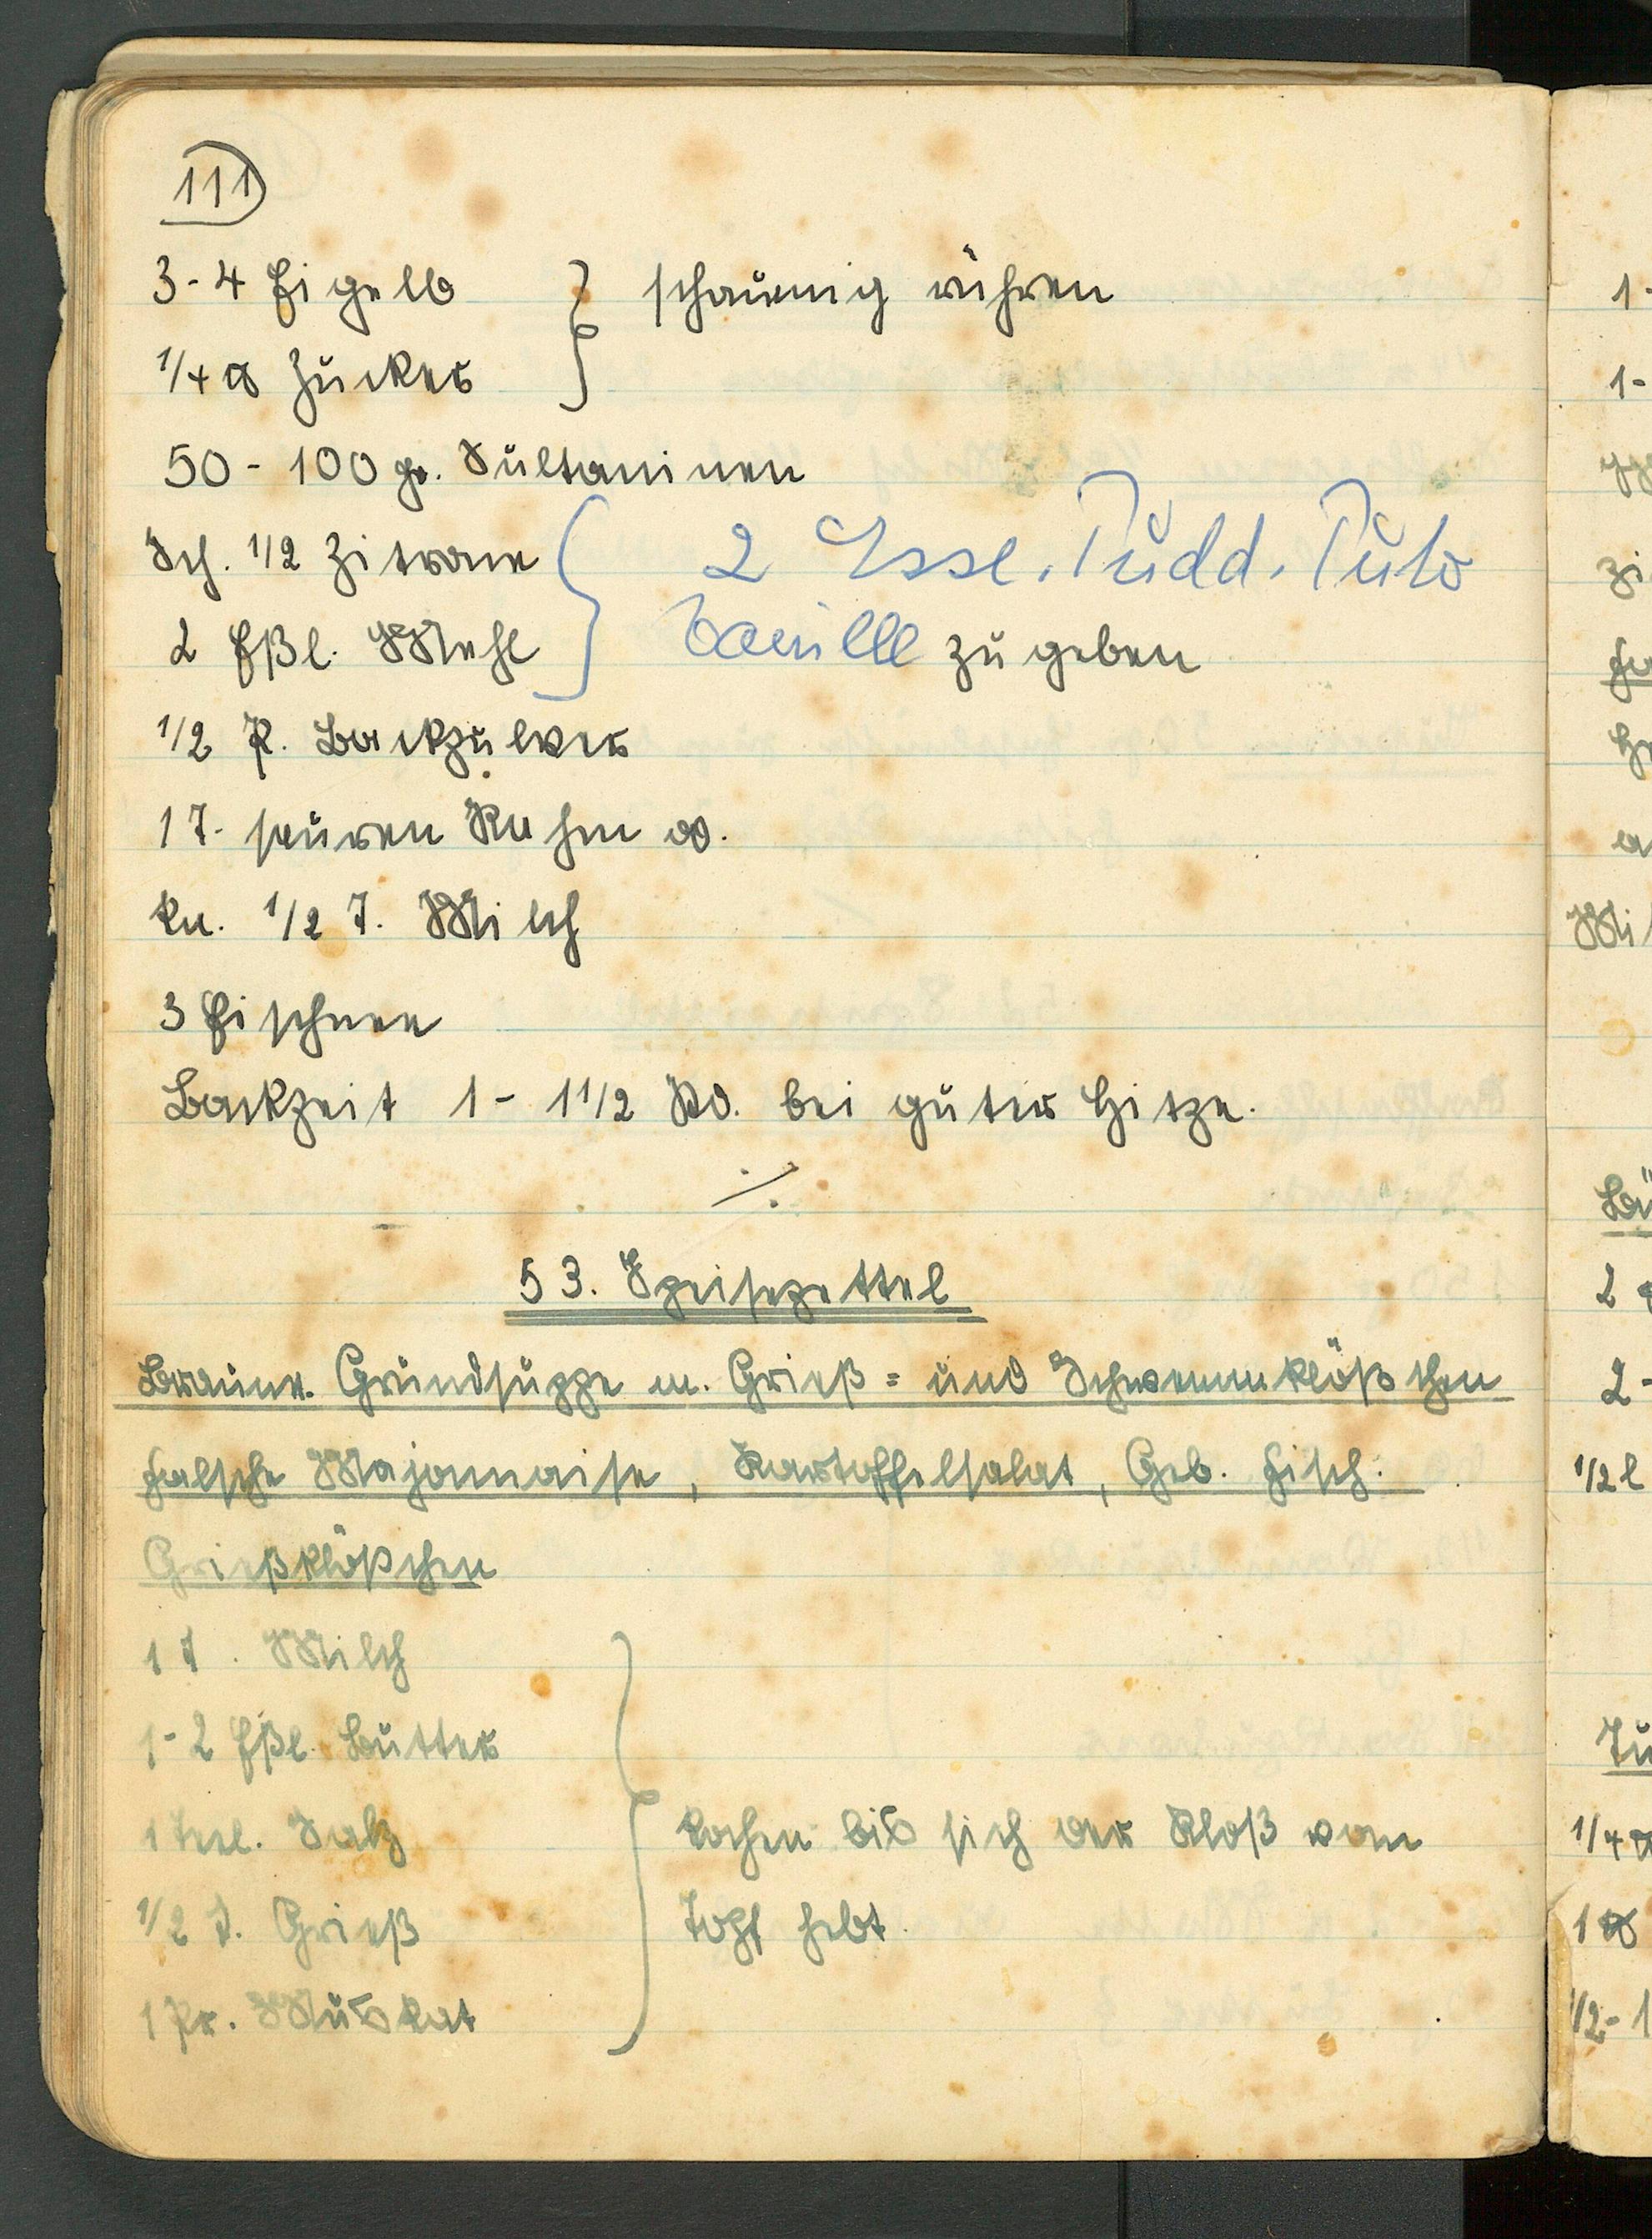 111
3-4 Eigelb } schaumig rühren
1/4 ℔ Zucker
50-100 gr. Sultaninen
Sch. 1/2 Zitrone } 2 Essl. Pudd. Pulv
2 Eßl. Mehl Vanille zugeben
1/2 P. Backpulver
1 T. sauren Rahm od.
kn. 1/2 T. Milch
3 Eischnee
Backzeit 1-1 1/2 Std. bei guter Hitze.
./.
53. Speisezettel
Braune Grundsuppe m. Grieß= und Schwemmklößchen
falsche Majonnaise, Kartoffelsalat, Geb. Fisch.
Grießklößchen
1 T. Milch
1-2 Eßl. Butter
1 Teel. Salz } kochen bis sich der Kloß vom
1/2 T. Grieß Topf hebt.
1 Pr. Muskat